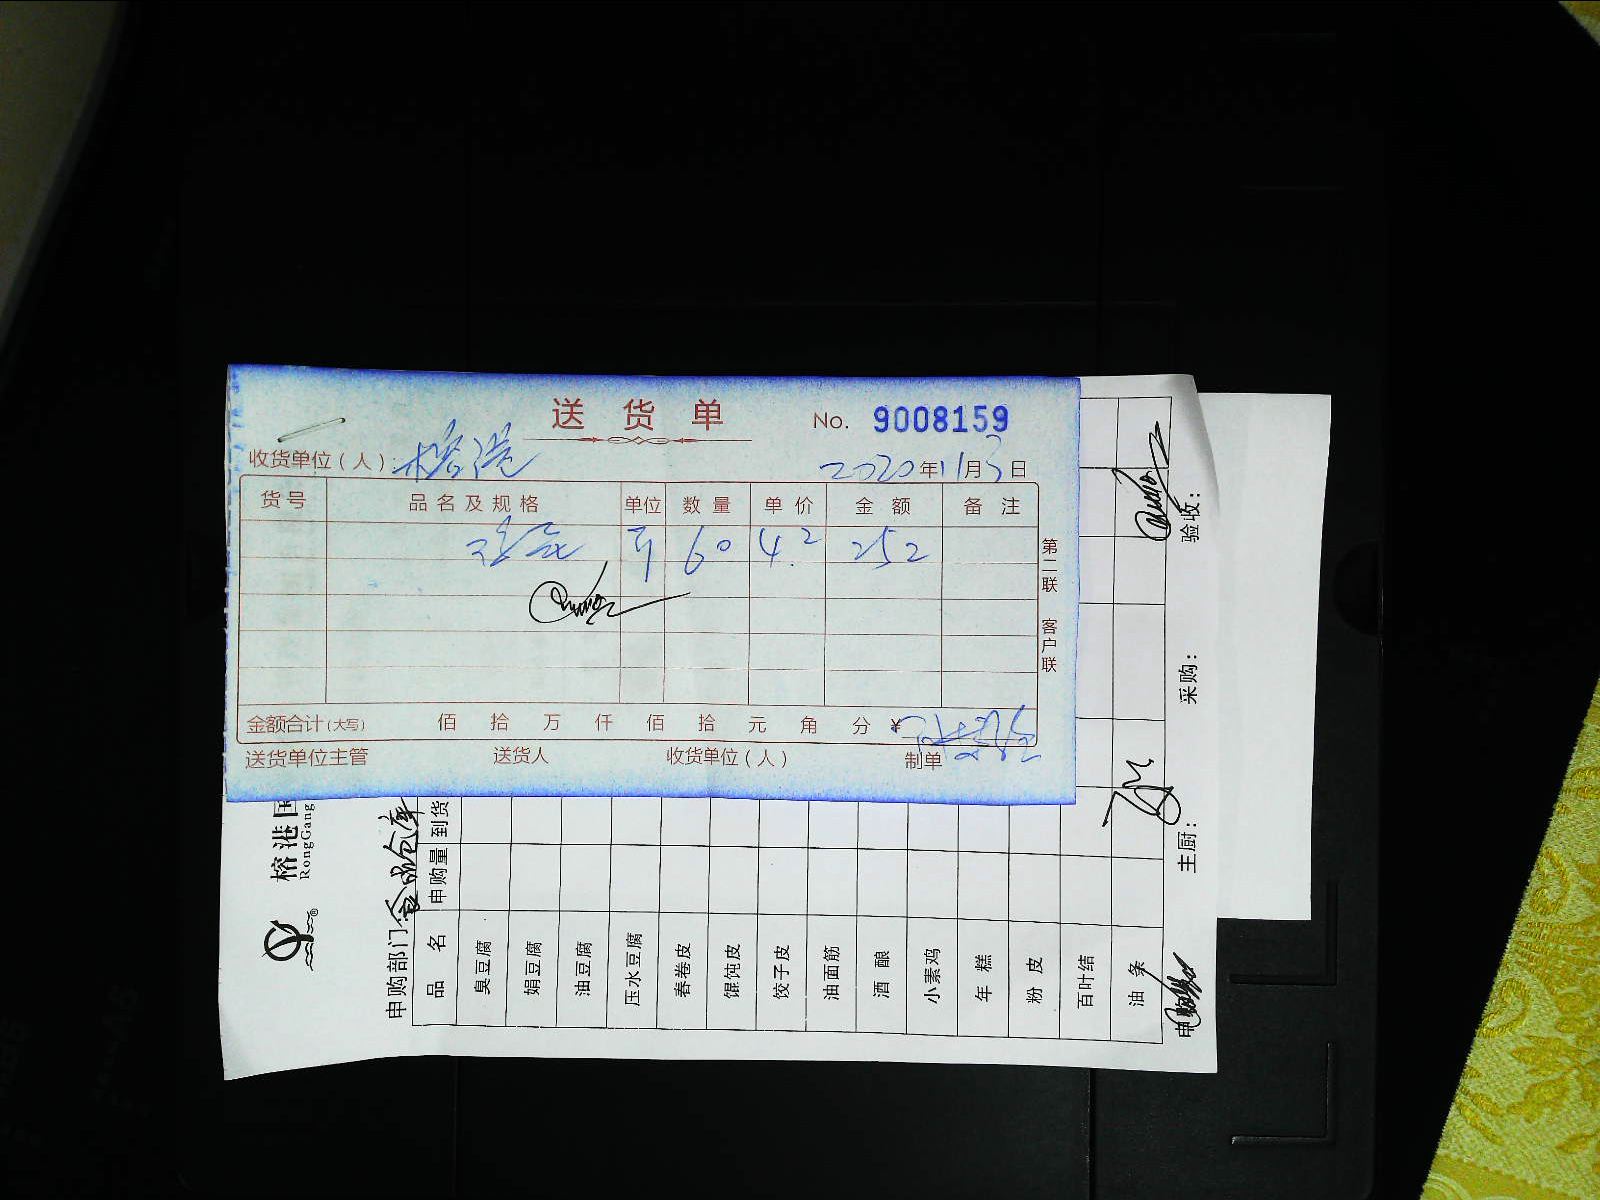 送货单 No. 9008159
收货单位(人) 榕港 2020年11月3日
货号 品名及规格 单位 数量 单价 金额 备注
60 4.2 252
第二联 客户联
金额合计(大写) 佰 拾 万 仟 佰 拾 元 角 分 ¥
送货单位主管 送货人 收货单位(人) 制单
榕港国
RongGang
申购部门:食品仓库
品名 申购量 到货
臭豆腐
娟豆腐
油豆腐
压水豆腐
春卷皮
馄饨皮
饺子皮
油面筋
酒酿
小素鸡
年糕
粉皮
百叶结
油条
主厨: 采购: 验收: